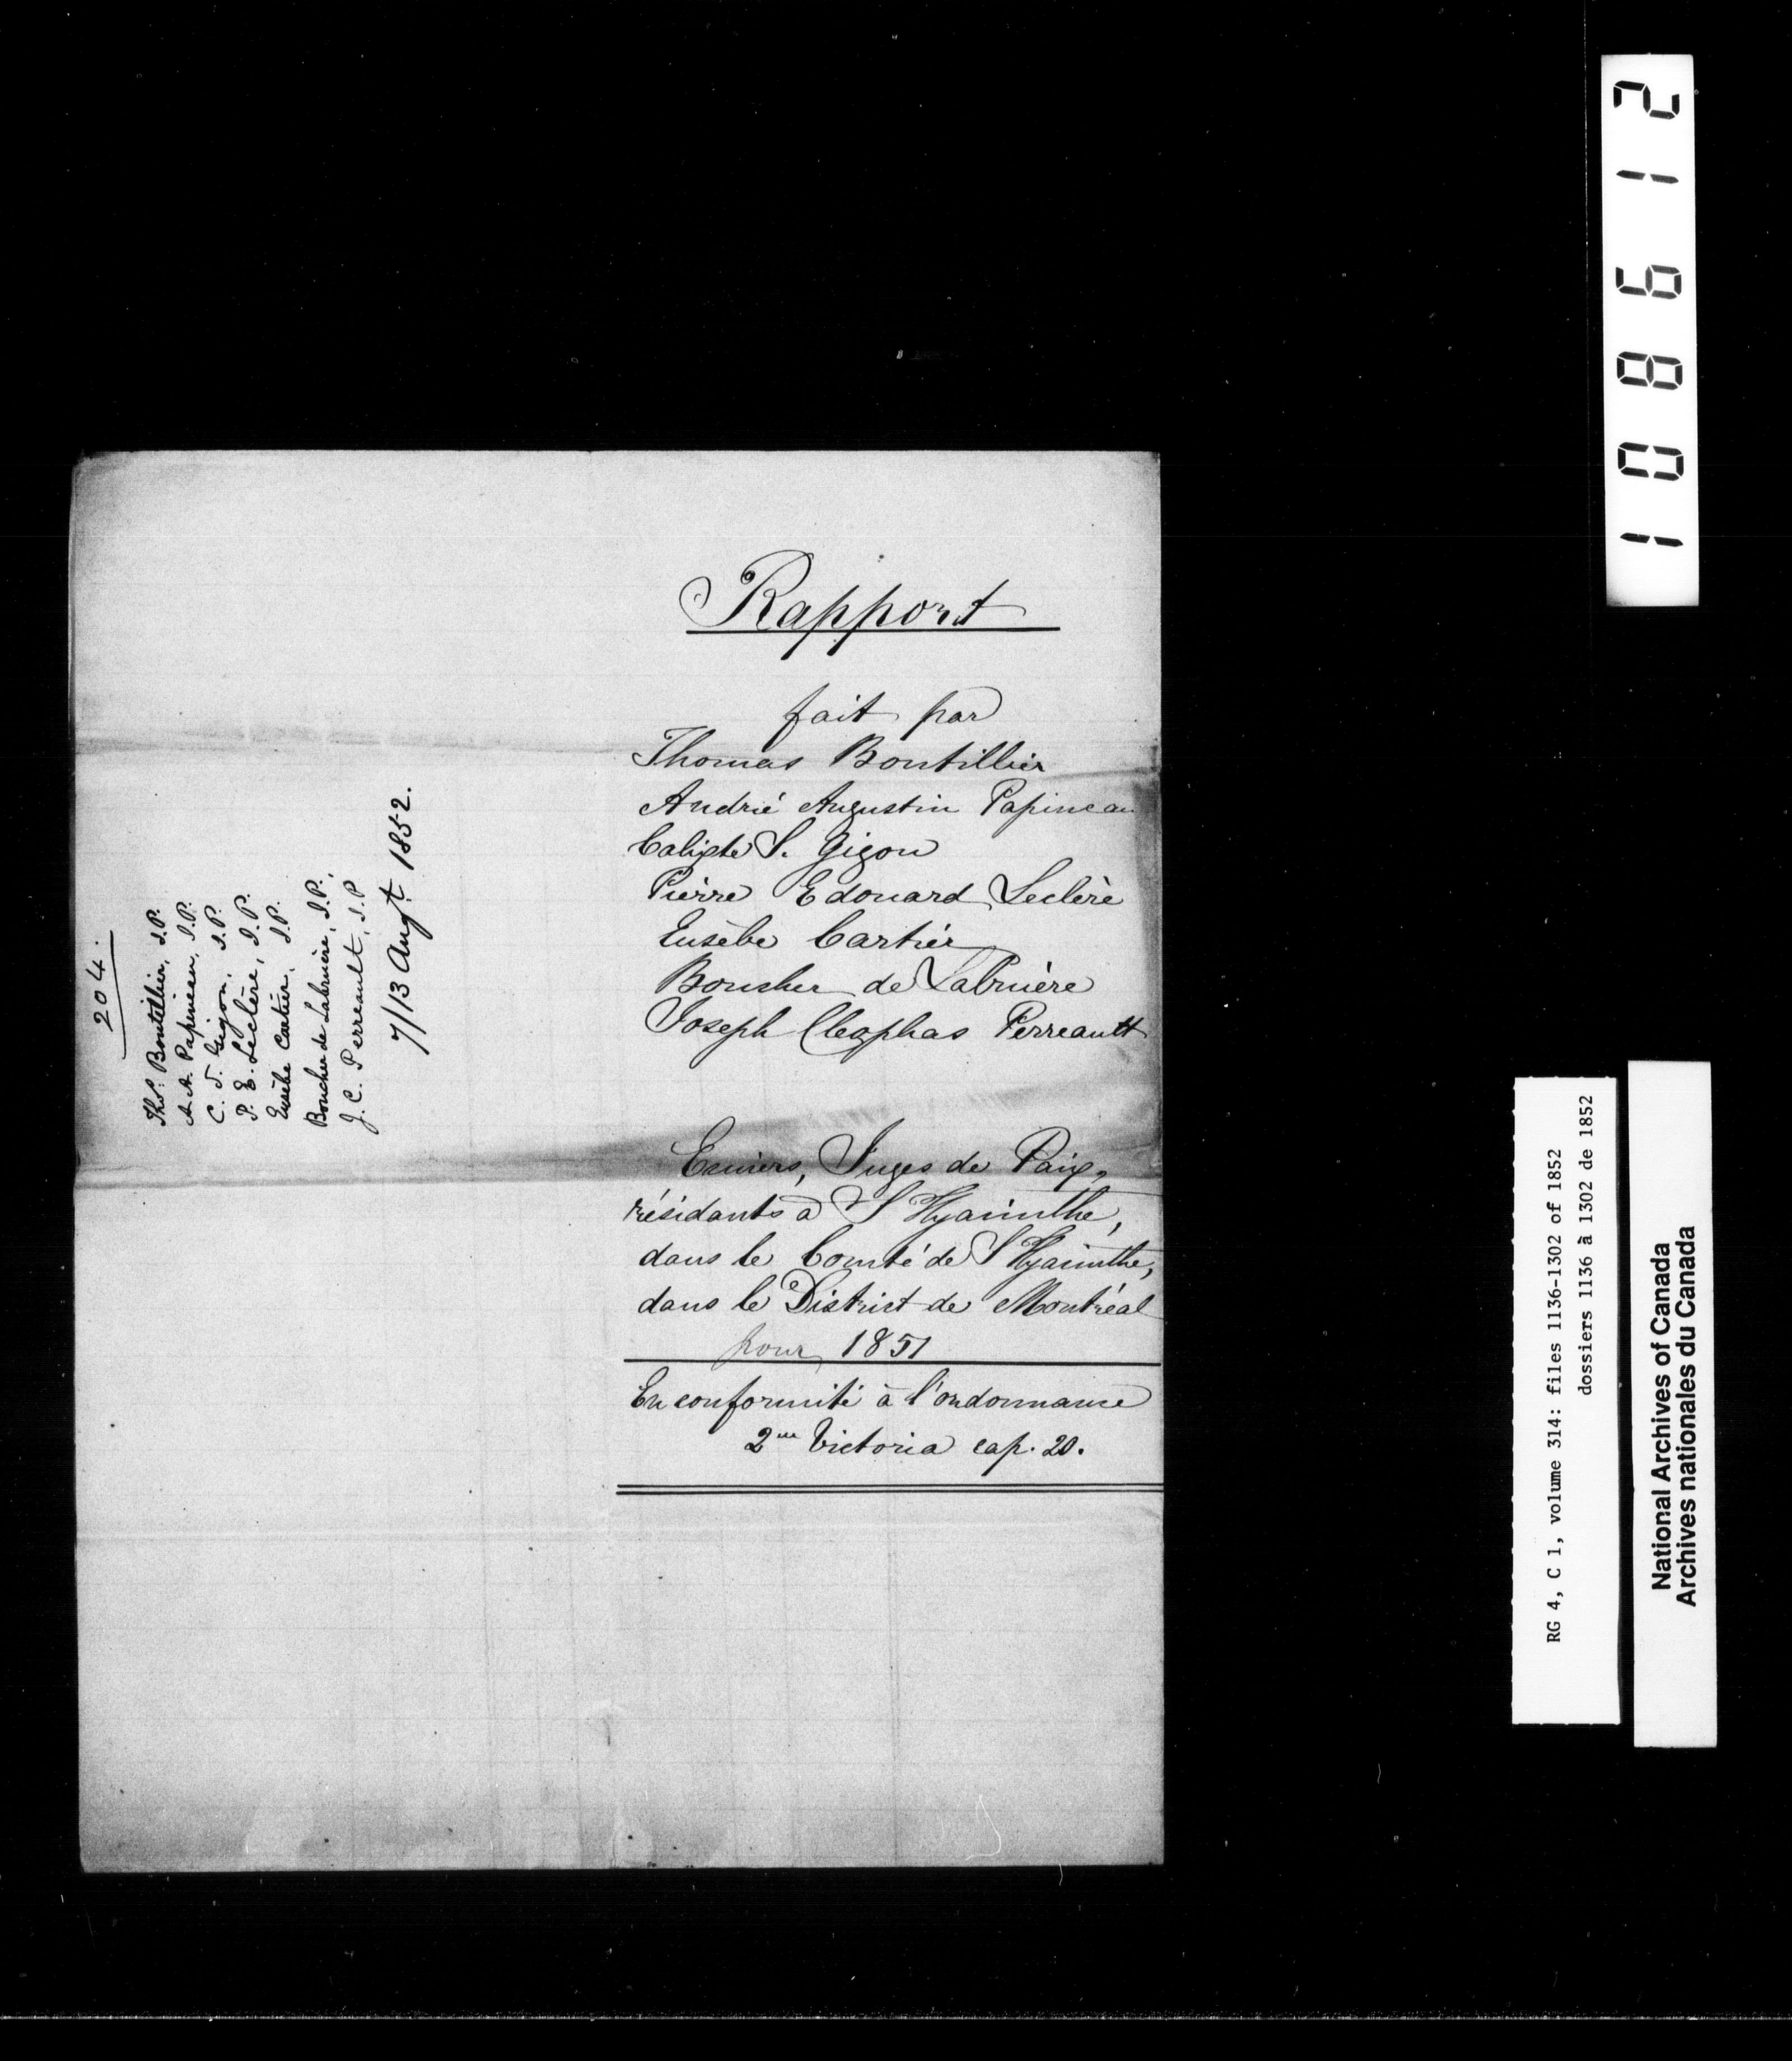 Rapport
fait par
Thomas Boutillier
André Augustin Papineau
Calixte S. Gigon
Pièrre Edouard Leclère
Eusèbe Cartier
Boucher de Labruère
Joseph Cleophas Perreault
Ecuiers, Juges de Paix,
résidants à St Hyacinthe,
dans le Comté de St Hyacinthe,
dans le District de Montréal
pour 1851
En conformité à l'ordonnance
2me Victoria cap. 20.
204.
Thos. Boutillier, J.P.
A. A. Papineau, J.P.
C. S. Gigon, J.P.
P. E. Leclère, J.P.
Eusèbe Cartier, J.P.
Boucher de Labruère, J.P.,
J. C. Perreault, J.P
7/13 Augt. 1852.
108612
RG 4, C 1, volume 314: files 1136-1302 of 1852
dossiers 1136 à 1302 de 1852
National Archives of Canada
Archives nationales du Canada